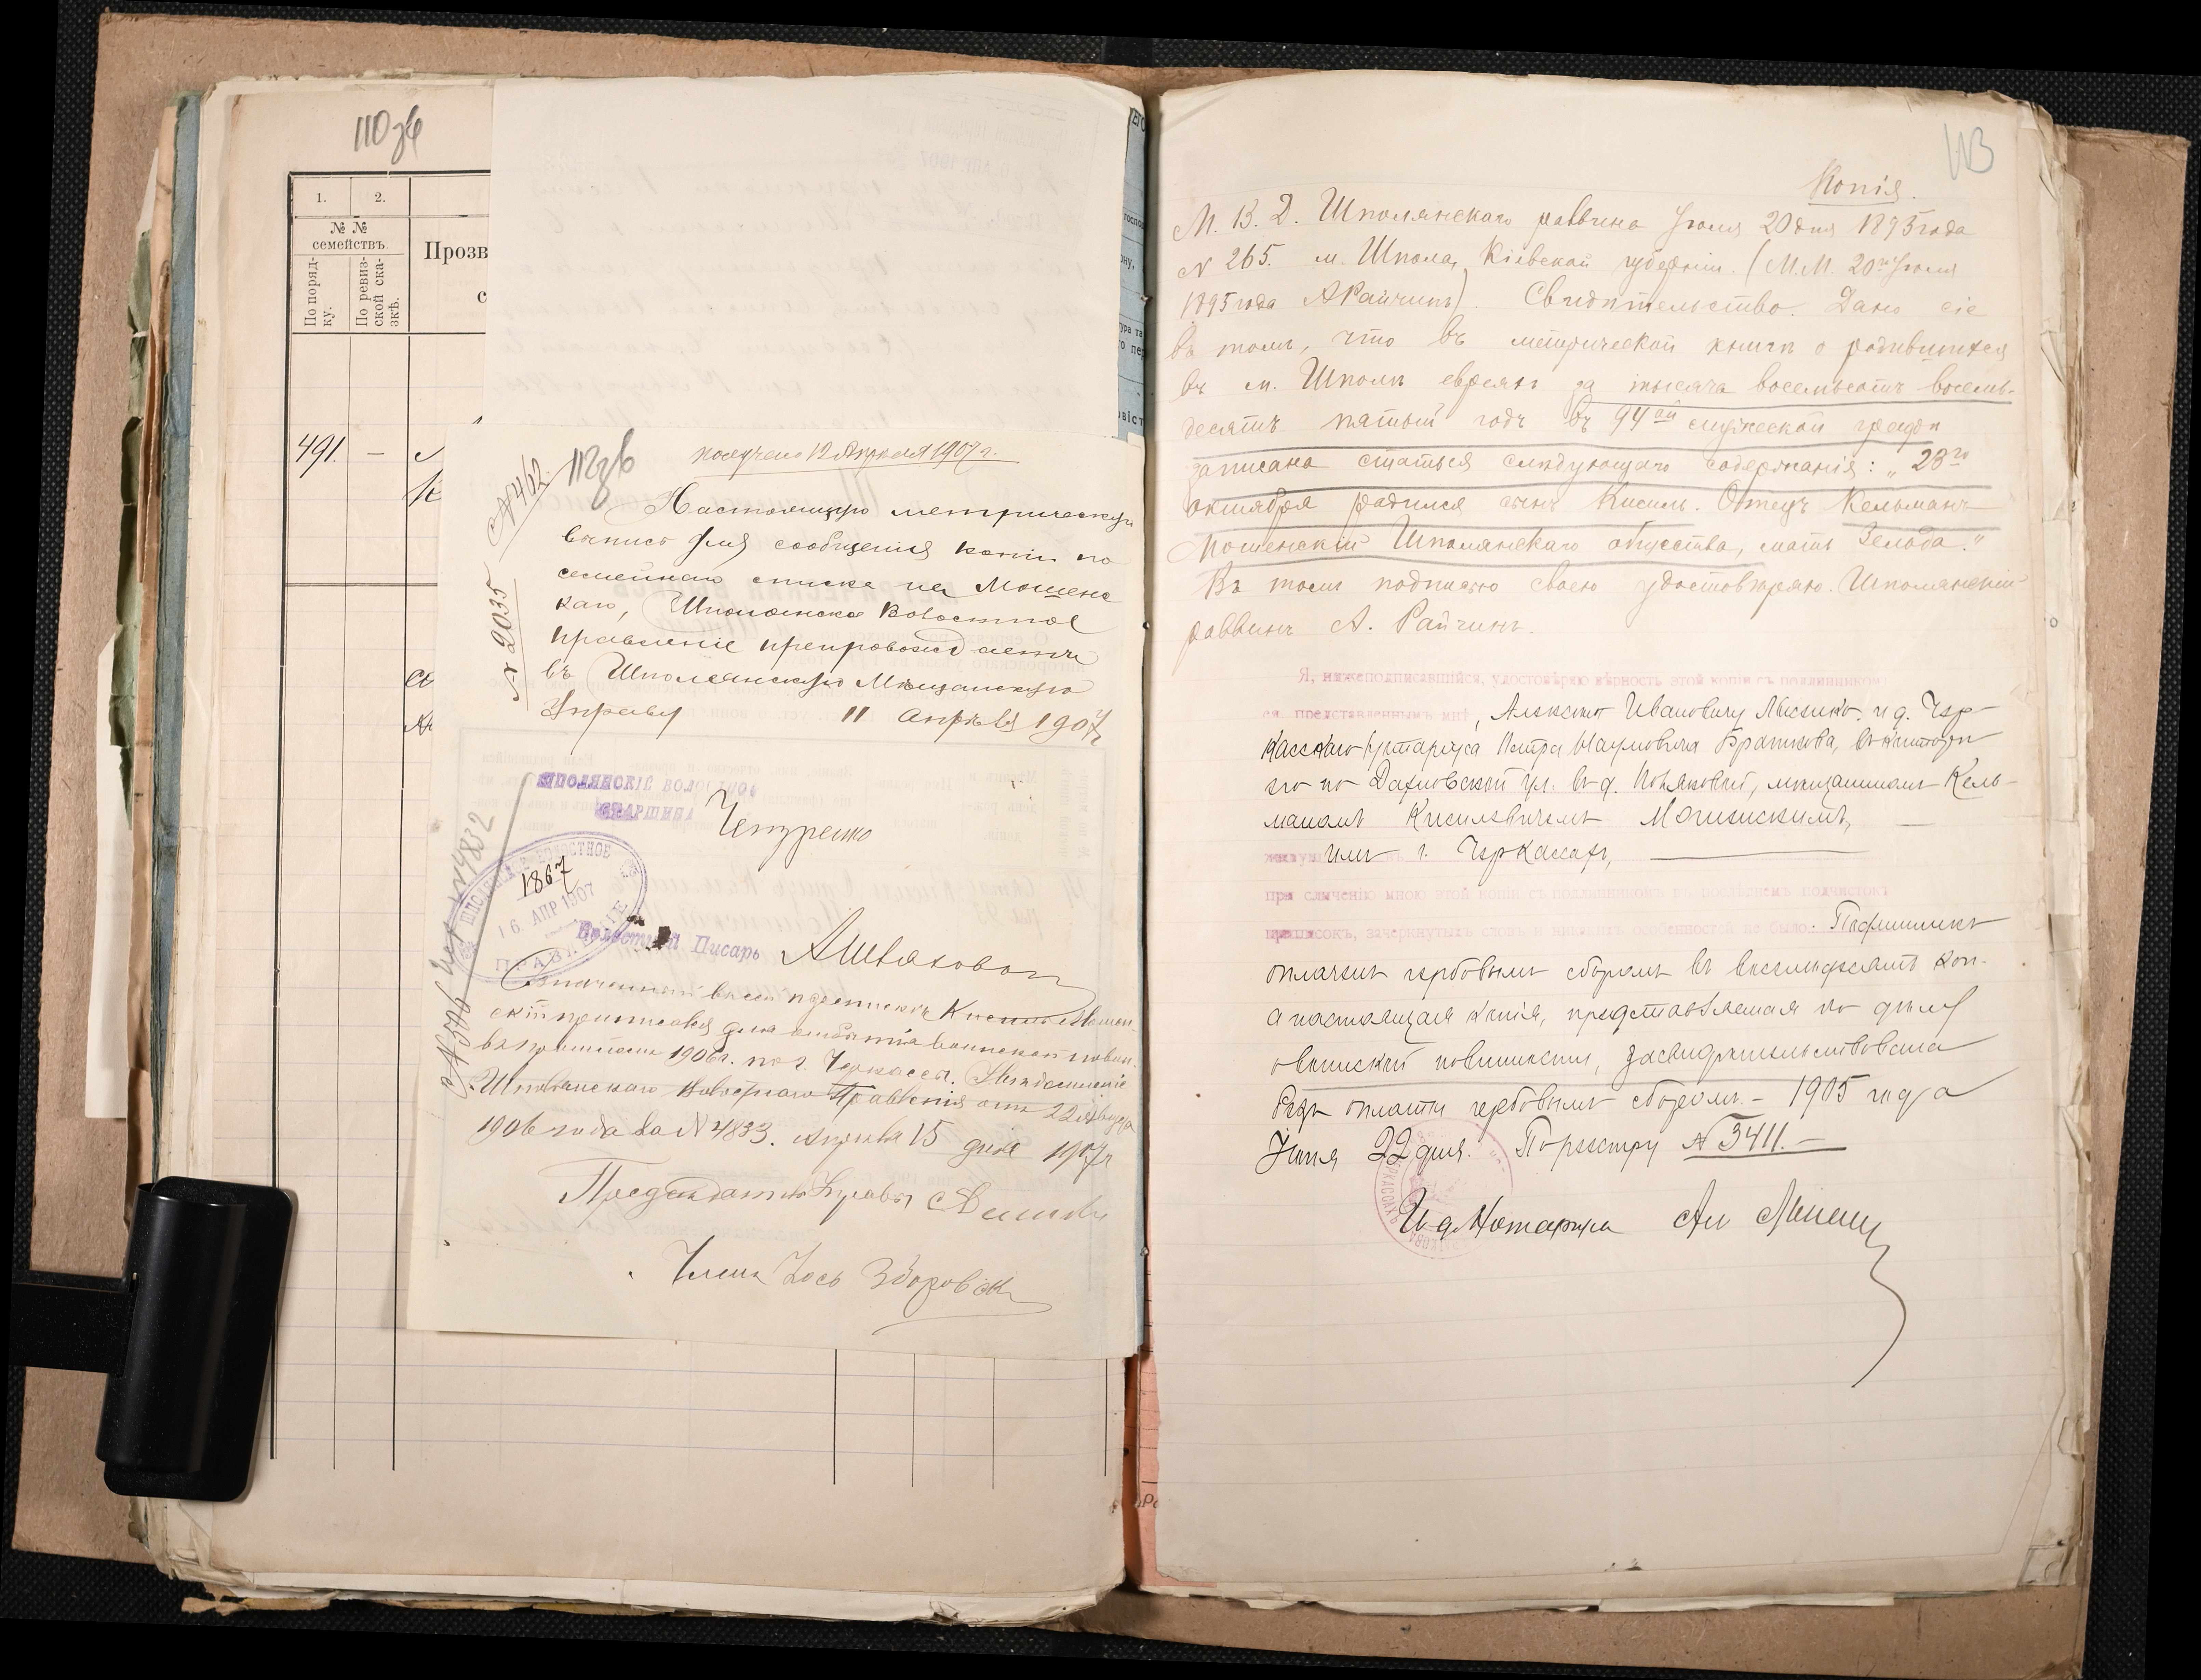 110 зв
1. 2.
№ №
семействъ.
Прозв
с
По поряд-
ку.
По ревиз-
ской ска-
зкѣ.
491. —
№ 462
112 зв
получено 12 Апреля 1907 г.
Настоящую метрическую
выпись для сообщенія копіи по
семейнаго списка на Мошенс
каго, Шполянское Волостное
правленіе препровождаетъ
въ Шполянскую Мѣщанскую
Управу 11 апрѣля 1907 г
№ 2035
ШПОЛЯНСКІЙ ВОЛОСТНОЙ
СТАРШИНА
ШПОЛЯНСКОЕ ВОЛОСТНОЕ
1867
16. АПР 1907
ПРАВЛЕНІЕ
Волостной Писарь
№ 4832
Означенный въ сей Кисиль Мошен-
скій приписался для отбытія воинской повин.
въ 1906 г. по г. Черкассы.
Шполянскаго Волостного Правленія отъ 22
1906 года за № 4833. Апреля 15 дня 1907 г
Председатель Управы
Членъ Іось Здоровок
113
Копія.
М. В. Д. Шполянскаго раввина Іюля 20 дня 1895 года
№ 265. м. Шпола, Кіевской губерніи. (М.М. 20го Іюля
1895 года А Райчинъ). Свидѣтельство. Дано сіе
въ томъ, что въ метрической книгѣ о родившихся
въ м. Шполѣ евреяхъ за тысяча восемьсотъ восемь-
десятъ пятый годъ въ 94ой мужеской графѣ
записана статья слѣдующаго содержанія: „23го
октября родился сынъ Кисиль. Отецъ Кельманъ
Мошенскій Шполянскаго общества, мать Зелода."
Въ томъ подписью своею удостовѣряю. Шполянскій
раввинъ А. Райчинъ.
Я, нижеподписавшійся, удостовѣряю вѣрность этой копіи съ подлинникомъ
ея, представленнымъ мнѣ, Алексѣю Ивановичу и. д. Чер-
касскаго Нотаріуса Петра Наумовича Браткова, въ конторѣ
его по Дахновской ул. въ д. мѣщаниномъ Кель-
маномъ Кисилевичемъ Мошенскимъ, —
жив въ г. Черкассахъ, —
при сличеніи мною этой копіи съ подлинникомъ въ послѣднемъ подчистокъ
приписокъ, зачеркнутыхъ словъ и никакихъ особенностей не было. Подлинникъ
оплаченъ гербовымъ сборомъ въ восемьдесятъ коп.
а настоящая копія, представляемая по дѣлу
о воинской повинности, засвидѣтельствована
безъ оплаты гербовымъ сборомъ. — 1905 года
Іюня 22 дня. По реестру № 3411. —
И. д. Нотаріуса